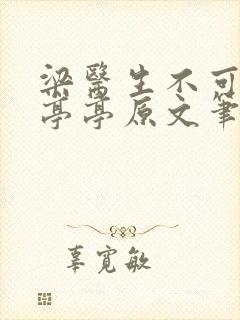 梁醫生不可
亭亭原文筆
辜寬敏